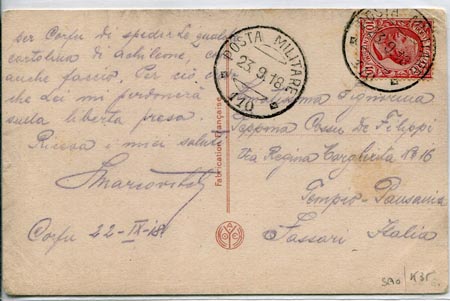 per Corfu di spedirle qualche
cartolina di Achileone, c
anche faccio. Per ciò
che Lei mi perdonerà
sulla libertà presa.
Riceva i miei saluti
Corfu 22-IX-18
Fabrication Française
POSTA MILITARE
23.9.18
110
POSTA MIL
110
Signorina
De Filippi
Via Regina Margherita No 16
Tempio-Pausania
Sassari Italia
K35